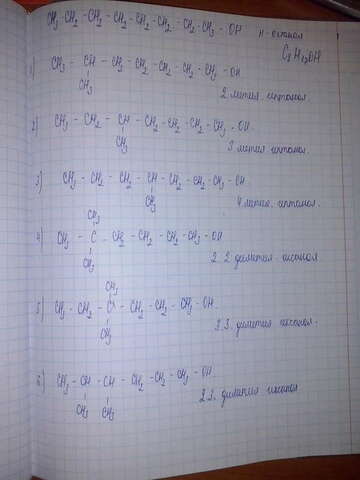 CH3-CH2-CH2-CH2-CH2-CH2-CH2-CH2-OH н-октанол
C8H17OH
1) CH3 - CH - CH2 - CH2 - CH2 - CH2 - CH2 - OH
CH3
2 метил гептанол
2) CH3 - CH2 - CH - CH2 - CH2 - CH2 - CH2 - OH
CH3
3 метил гептанол
3) CH3 - CH2 - CH2 - CH - CH2 - CH2 - CH2 - OH
CH3
4 метил гептанол
CH3
4) CH3 - C - CH2 - CH2 - CH2 - CH2 - OH
CH3
2.2 диметил гексанол
CH3
5) CH3 - CH2 - C - CH2 - CH2 - CH2 - OH
CH3
3.3. диметил гексанол.
6) CH3 - CH - CH - CH2 - CH2 - CH2 - OH
CH3 CH3
2.3. диметил гексанол